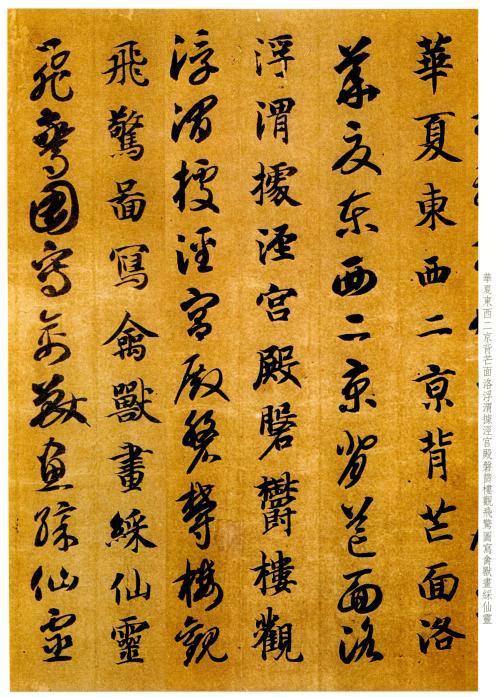 華夏東西二京背芒面洛
華夏東西二京背芒面洛
浮渭據涇宫殿磐鬱樓觀
浮渭據涇宫殿磐鬱樓觀
飛驚啚寫禽獸畫綵仙靈
飛驚圖寫禽獸畫綵仙靈
華夏東西二京背芒面洛浮渭據涇宮殿磐鬱樓觀飛驚圖寫禽獸畫綵仙靈